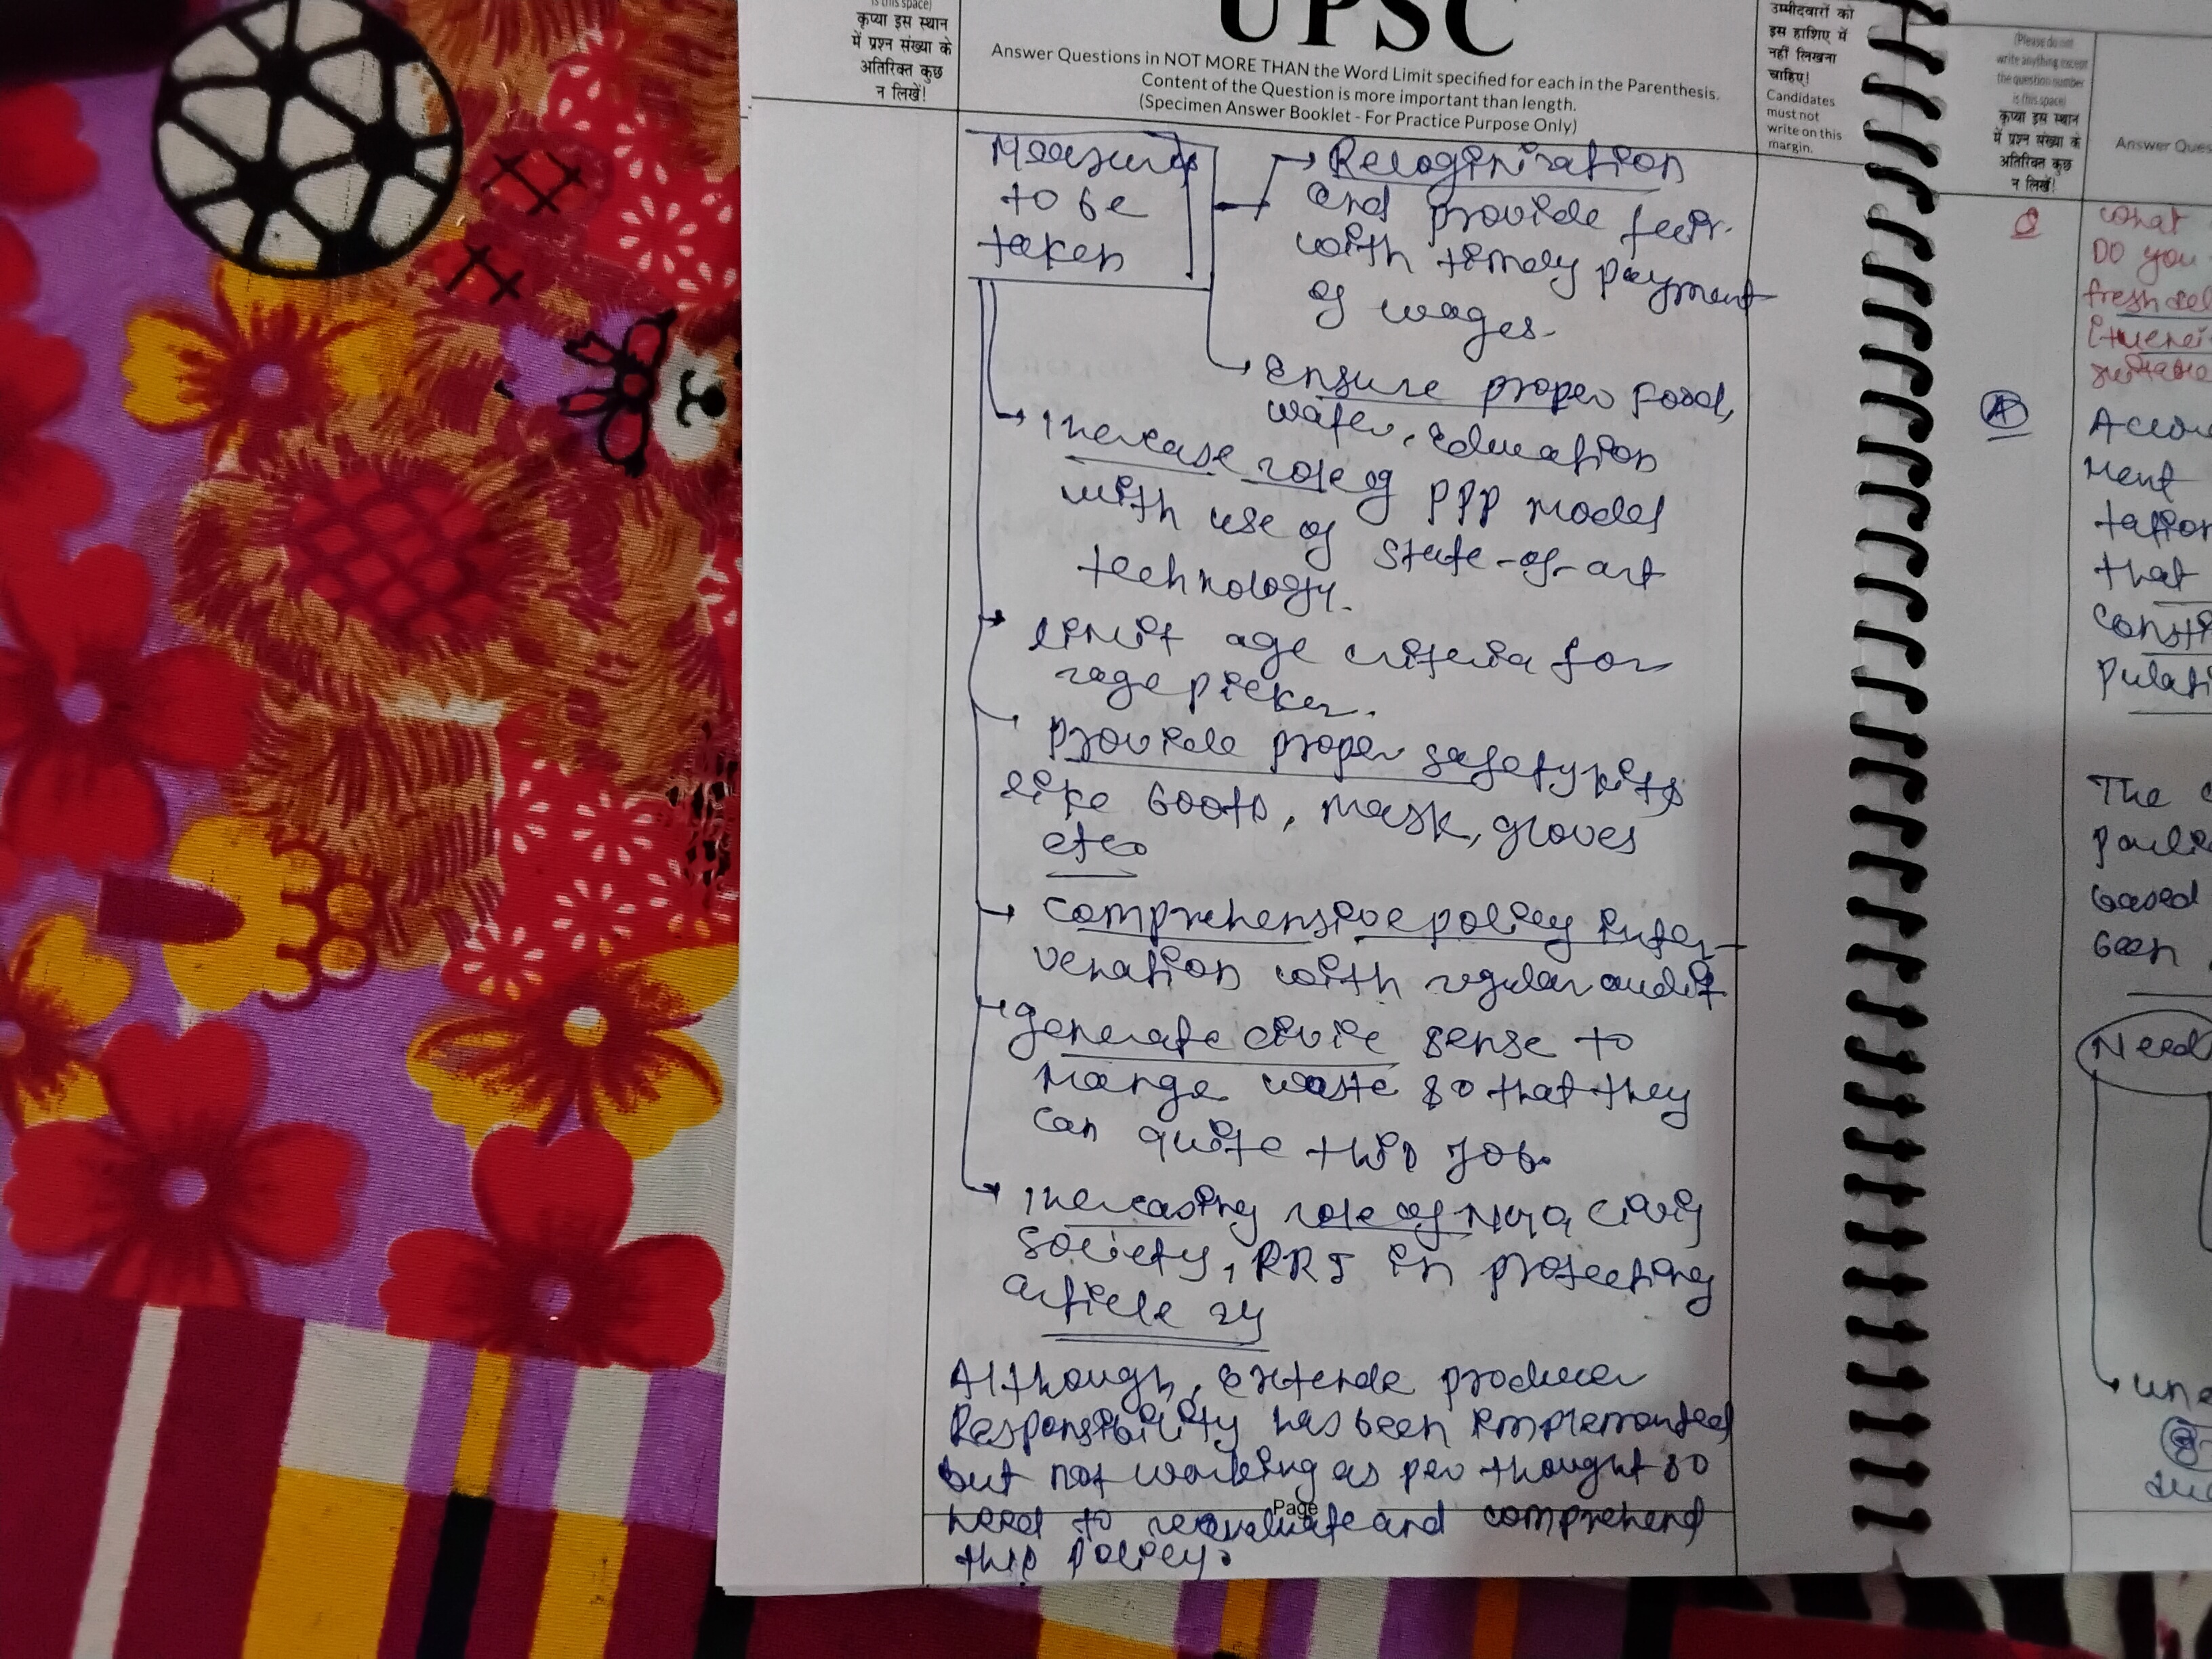 is this space)
कृप्या इस स्थान
में प्रश्न संख्या के
अतिरिक्त कुछ
न लिखें!
UPSC
Answer Questions in NOT MORE THAN the Word Limit specified for each in the Parenthesis.
Content of the Question is more important than length.
(Specimen Answer Booklet - For Practice Purpose Only)
उम्मीदवारों को
इस हाशिए में
नहीं लिखना
चाहिए!
Candidates
must not
write on this
margin.
Measures
to be
taken
Recoginisation
and provide fair
with timely payment
of wages.
Ensure proper food,
water, Education
Increase role of PPP model
with use of State-of-art
technology.
limit age criteria for
rage picker.
provide proper safety kits
like boots, mask, gloves
etc.
comprehensive policy inter-
venation with regular audit
generate civic sense to
mange waste so that they
can quite this job.
Increasing role of NGO, Civil
Society, in protecting
article 24
Although, Extende producer
Responsibility has been implemented
but not working as per thought so
need to reevaluate and comprehend
this policy.
Page
(Please do not
write anything except
the question number
is this space)
कृप्या इस स्थान
में प्रश्न संख्या के
अतिरिक्त कुछ
न लिखें!
Answer Ques
Q
what
DO you
fresh del
suitable
A
Accor
ment
tation
that
Consti
pulati
The
parli
based
been
Need
une